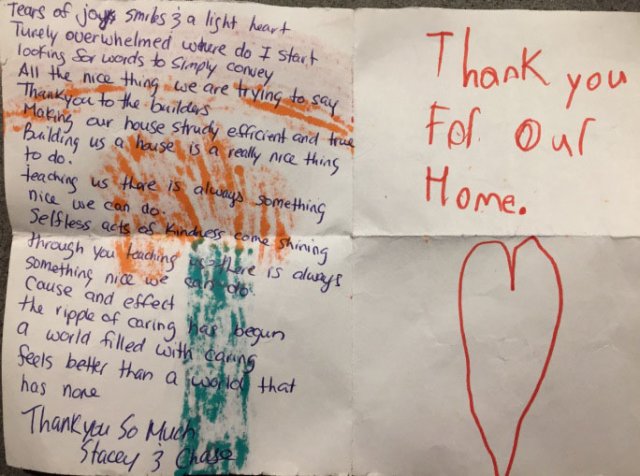 Tears of joys smiles & a light heart
Turely overwhelmed where do I start
looking for words to simply convey
All the nice thing we are trying to say
Thankyou to the builders
Making our house strudy efficient and true
Building us a house is a really nice thing
to do.
teaching us there is always something
nice we can do.
Selfless acts of kindness come shining
through you teaching us there is always
something nice we can do
Cause and effect
the ripple of caring has begun
a world filled with caring
feels better than a world that
has none
Thankyou So Much
Stacey & Chase
Thank you
For Our
Home.